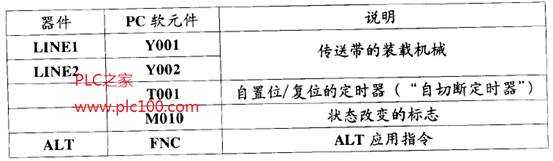 器件 PC 软元件 说明
LINE1 Y001 传送带的装载机械
LINE2 Y002
T001 自置位/复位的定时器（“自切断定时器”）
M010 状态改变的标志
ALT FNC ALT 应用指令
PLC之家
www.plc100.com